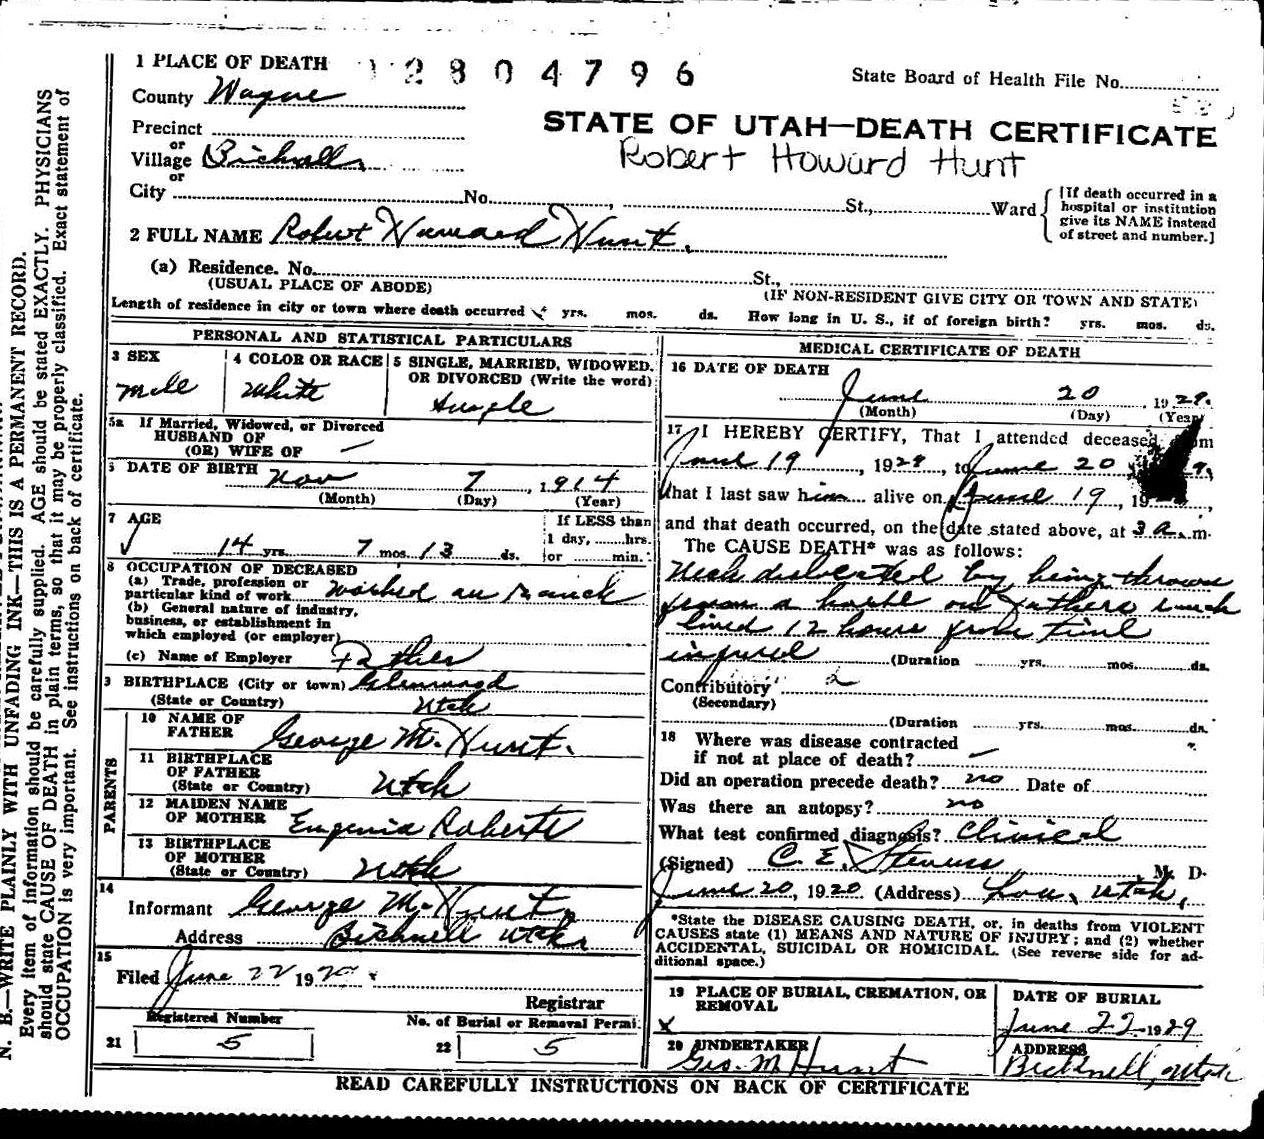 1 PLACE OF DEATH 2804796
State Board of Health File No.
County Wayne
STATE OF UTAH—DEATH CERTIFICATE
Precinct
or
Robert Howard Hunt
Village Bicknell
or
City No. St., Ward
[If death occurred in a hospital or institution give its NAME instead of street and number.]
2 FULL NAME Robert Howard Hunt.
(a) Residence. No. St.,
(USUAL PLACE OF ABODE) (IF NON-RESIDENT GIVE CITY OR TOWN AND STATE)
Length of residence in city or town where death occurred yrs. mos. ds. How long in U. S., if of foreign birth? yrs. mos. ds.
PERSONAL AND STATISTICAL PARTICULARS
3 SEX
Male
4 COLOR OR RACE
White
5 SINGLE, MARRIED, WIDOWED.
OR DIVORCED (Write the word)
Single
5a If Married, Widowed, or Divorced
HUSBAND OF
(OR) WIFE OF —
6 DATE OF BIRTH Nov 7, 1914
(Month) (Day) (Year)
7 AGE
14 yrs. 7 mos. 13 ds.
If LESS than
1 day, hrs.
or min.
8 OCCUPATION OF DECEASED
(a) Trade, profession or
particular kind of work worked on ranch
(b) General nature of industry,
business, or establishment in
which employed (or employer)
(c) Name of Employer Father
9 BIRTHPLACE (City or town) Glenwood
(State or Country) Utah
PARENTS
10 NAME OF
FATHER George M. Hunt.
11 BIRTHPLACE
OF FATHER
(State or Country) Utah
12 MAIDEN NAME
OF MOTHER Eugenia Roberts
13 BIRTHPLACE
OF MOTHER
(State or Country) Utah
14
Informant George M. Hunt
Address Bicknell Utah
15
Filed June 22 19
Registrar
Registered Number
21 5
No. of Burial or Removal Permi.
22 5
MEDICAL CERTIFICATE OF DEATH
16 DATE OF DEATH
June 20, 1929.
(Month) (Day) (Year)
17 I HEREBY CERTIFY, That I attended deceased from
June 19, 1929, to June 20
that I last saw him alive on June 19, 19
and that death occurred, on the date stated above, at 3 a. m.
The CAUSE DEATH* was as follows:
Neck dislocated by being thrown
from a horse on fathers ranch
lived 12 hours from time
injured (Duration yrs. mos. ds.
Contributory
(Secondary)
(Duration yrs. mos. ds.
18 Where was disease contracted
if not at place of death? —
Did an operation precede death? no Date of
Was there an autopsy? no
What test confirmed diagnosis? Clinical
(Signed) C. E. M. D.
June 20, 1920 (Address) Loa, Utah,
*State the DISEASE CAUSING DEATH, or, in deaths from VIOLENT
CAUSES state (1) MEANS AND NATURE OF INJURY; and (2) whether
ACCIDENTAL, SUICIDAL OR HOMICIDAL. (See reverse side for ad-
ditional space.)
19 PLACE OF BURIAL, CREMATION, OR
REMOVAL
x
DATE OF BURIAL
June 22 1929
20 UNDERTAKER
Geo. M Hunt
ADDRESS
Bicknell, Utah
READ CAREFULLY INSTRUCTIONS ON BACK OF CERTIFICATE
N. B.—WRITE PLAINLY WITH UNFADING INK—THIS IS A PERMANENT RECORD.
Every item of information should be carefully supplied. AGE should be stated EXACTLY. PHYSICIANS
should state CAUSE OF DEATH in plain terms, so that it may be properly classified. Exact statement of
OCCUPATION is very important. See instructions on back of certificate.